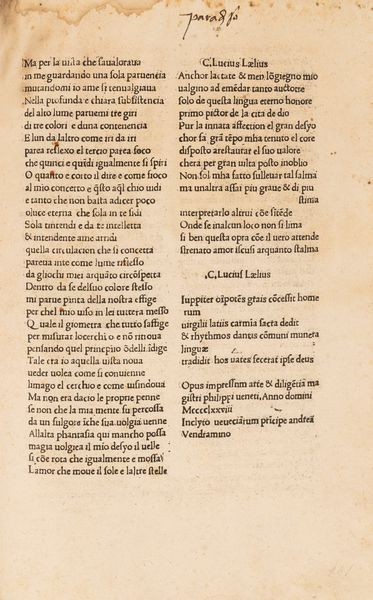 paradiso
Ma per la uista che saualoraua
in me guardando una sola paruencia
mutandomi io ame si trauaglaua
Nella profunda e chiara subsistencia
del alto lume paruemi tre giri
di tre colori e duna contenencia
E lun da laltro come iri da iri
parea reflexo el tercio parea foco
che quinci e quīdi igualmente si spiri
O quanto e corto il dire e come fioco
al mio concerto e q̄sto aql chio uidi
e tanto che non basta adicer poco
o luce eterna che sola in te sidi
Sola tintendi e da te intelletta
& intendente ame arridi
quella circulacion che si concetta
pareua inte come lume riflesso
da gliochi miei arquāto circōspetta
Dentro da se delsuo colore stesso
mi parue pinta della nostra effige
per chel mio uiso in lei tuttera messo
Quale il giometra che tutto saffige
per misurar locerchi o e nō rinoua
pensando quel principio ōdelli īdige
Tale era io aquella uista noua
ueder uolea come si conuenne
limago el cerchio e come uisindoua
Ma non eran dacio le proprie penne
se non che la mia mente fu percossa
da un fulgore īche sua uolgia uenne
Allalta phantasia qui mancho possa
magia uolgiea il mio desyo il uelle
si cōe rota che igualmente e mossa
Lamor che moue il sole e laltre stelle
C. Lucius Lælius
Anchor lactate & men lōgiegno mio
ualgino ad emēdar tanto auctore
solo de questa lingua eterno honore
primo pictor de la cita de dio
Pur la innata affection el gran desyo
chor fa grā tēpo mha tenuto el core
disposto arestaurar el suo ualore
chera per gran uulta posto inoblio
Non sol mha fatto sulleuar tal salma
ma unaltra assai piu graue & di piu
stima
interpretarlo altrui cōe sītēde
Onde se inalcun loco non si lima
si ben questa opra cōe il uero attende
strenato amor iscusi arquanto stalma
C. Lucius Lælius
Iuppiter oīpotēs gratis cōcessit home
rum
uirgilii latiis carmīa sacra dedit
& rhythmos dantis cōmuni munera
linguæ
tradidit hos uates secerat ipse deus
Opus impressum arte & diligētia ma
gistri philippi ueneti. Anno domini
Mcccclxxviii
Inclyto uenetiarum prīcipe andrea
Vendramino